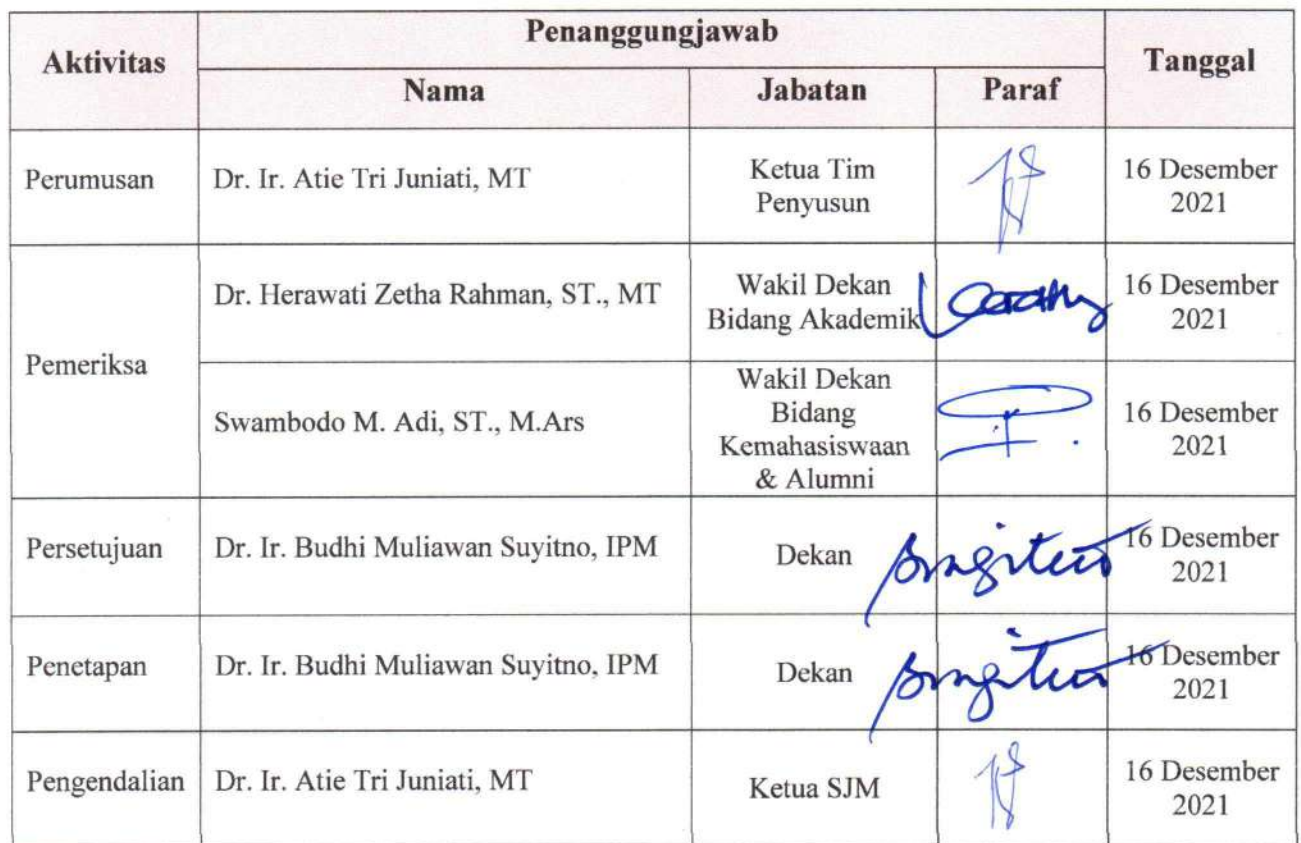 Aktivitas
Penanggungjawab
Tanggal
Nama
Jabatan
Paraf
Perumusan
Dr. Ir. Atie Tri Juniati, MT
Ketua Tim
Penyusun
16 Desember
2021
Pemeriksa
Dr. Herawati Zetha Rahman, ST., MT
Wakil Dekan
Bidang Akademik
16 Desember
2021
Swambodo M. Adi, ST., M.Ars
Wakil Dekan
Bidang
Kemahasiswaan
& Alumni
16 Desember
2021
Persetujuan
Dr. Ir. Budhi Muliawan Suyitno, IPM
Dekan
16 Desember
2021
Penetapan
Dr. Ir. Budhi Muliawan Suyitno, IPM
Dekan
16 Desember
2021
Pengendalian
Dr. Ir. Atie Tri Juniati, MT
Ketua SJM
16 Desember
2021